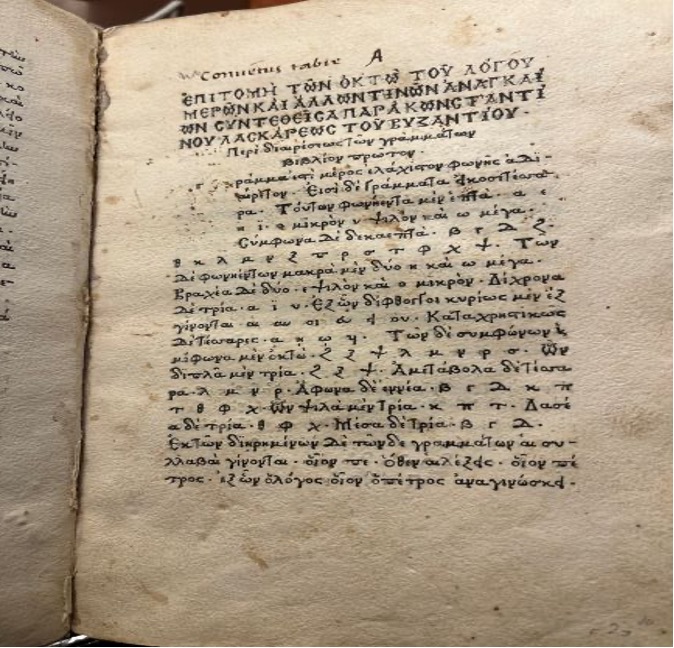 Conuētus
A
ἘΠΙΤΟΜΗ ΤΩ͂Ν ὈΚΤῺ ΤΟΥ͂ ΛΌΓΟΥ
ΜΕΡΩ͂Ν ΚΑῚ ἌΛΛΩΝ ΤΙΝΩ͂Ν ἈΝΑΓΚΑΊ
ΩΝ ΣΥΝΤΕΘΕΙ͂ΣΑ ΠΑΡᾺ ΚΩΝΣΤΑΝΤΊ
ΝΟΥ ΛΑΣΚΆΡΕΩΣ ΤΟΥ͂ ΒΥΖΑΝΤΊΟΥ.
Περὶ διαιρέσεως τῶν γραμμάτων
βιβλίον πρῶτον.
γράμμα ἐστὶ μέρος ἐλάχιστον φωνῆς ἀδι-
αίρετον. Εἰσὶ δὲ γράμματα εἰκοσιτέσσα-
ρα. Τούτων φωνήεντα μὲν ἑπτά. α ε
η ι ο μικρὸν υ ψιλὸν καὶ ω μέγα.
Σύμφωνα δὲ δεκαεπτά. β γ δ ζ
θ κ λ μ ν ξ π ρ σ τ φ χ ψ. Τῶν
δὲ φωνηέντων μακρὰ μὲν δύο η καὶ ω μέγα.
Βραχέα δὲ δύο. ε ψιλὸν καὶ ο μικρὸν. Δίχρονα
δὲ τρία. α ϊ υ. Ἐξ ὧν δίφθογγοι κυρίως μὲν ἓξ
γίνονται. αι αυ οι ευ ει ου. Καταχρηστικῶς
δὲ τέσσαρες. ᾳ ῃ ῳ
Τῶν δὲ συμφώνων
μίφωνα μὲν ὀκτώ. ζ ξ ψ λ μ ν ρ σ. Ὧν
διπλᾶ μὲν τρία. ζ ξ ψ. Ἀμετάβολα δὲ τέσσα
ρα. λ μ ν ρ. Ἄφωνα δὲ ἐννέα. β γ δ κ π
τ θ φ χ. Ὧν ψιλὰ μὲν τρία. κ π τ. Δασέ
α δὲ τρία. θ φ χ. Μέσα δὲ τρία. β γ δ.
Ἐκ τῶν διῃρημένων δὲ τῶνδε γραμμάτων αἱ συ-
λλαβαὶ γίνονται. οἷον πε. ὅθεν αἱ λέξεις. οἷον πέ
τρος. ἐξ ὧν ὁ λόγος οἷον ὁ πέτρος ἀναγινώσκει.